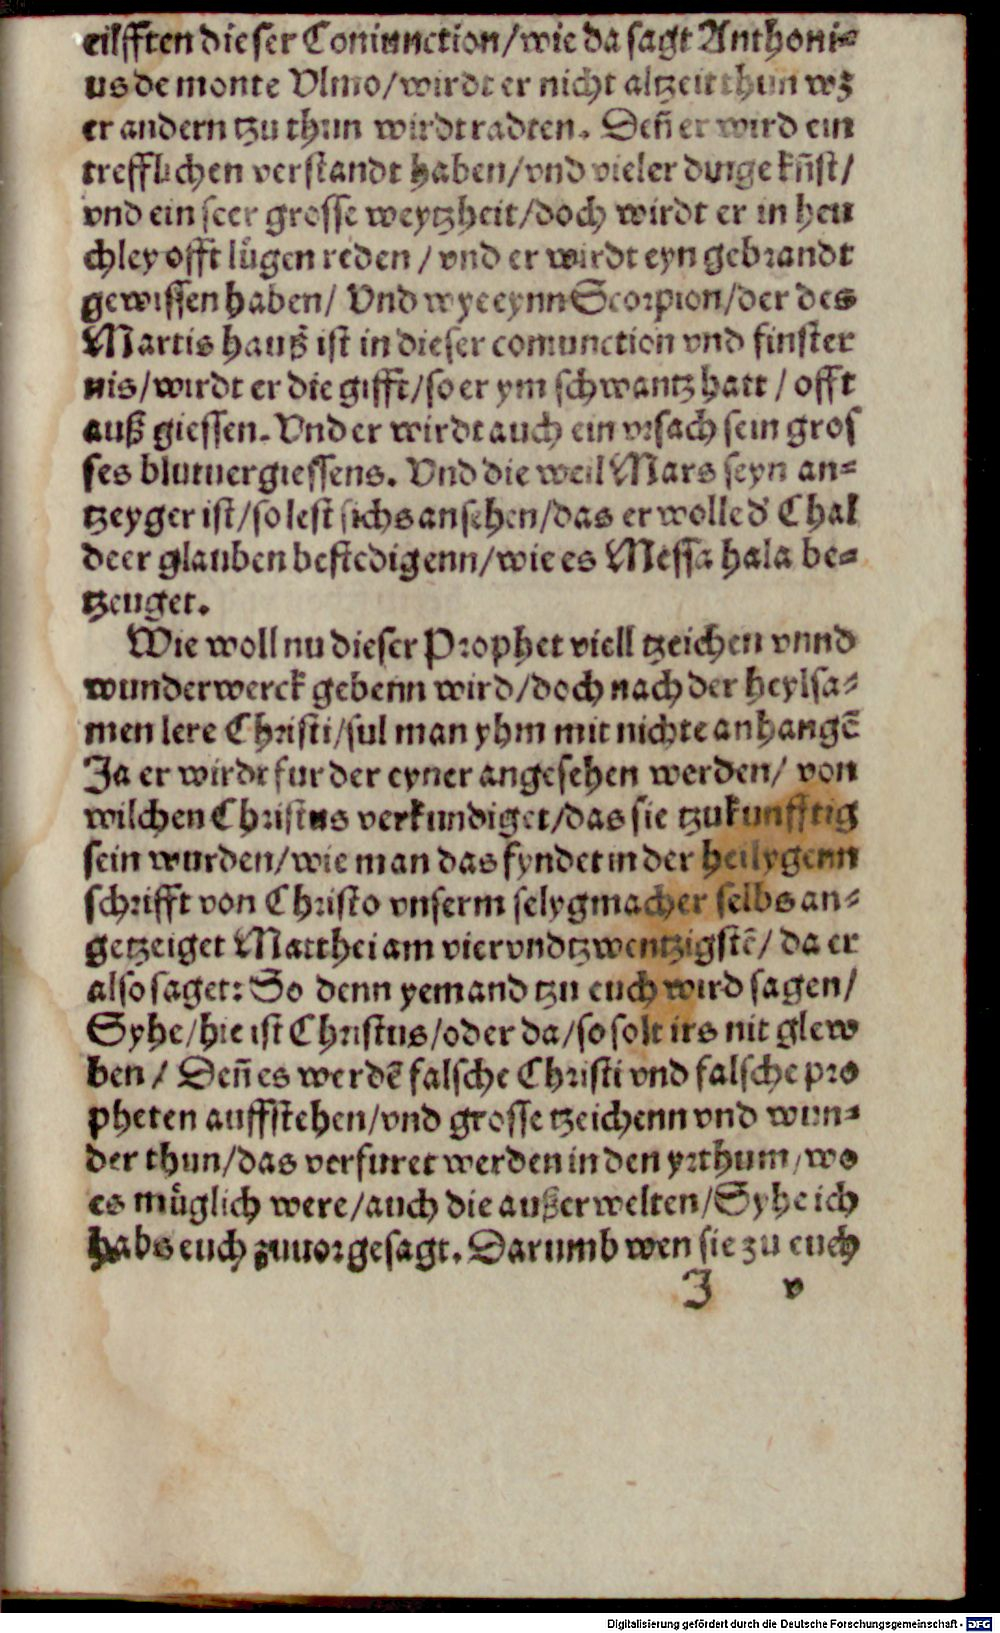 eilfften dieser Coniunction/wie da sagt Anthoni⸗
us de monte Vlmo/wirdt er nicht altzeit thun wz
er andern tzu thun wirdt radten. Deñ er wird ein
trefflichen verstandt haben/vnd vieler dinge kũst/
vnd ein seer grosse weytzheit/doch wirdt er in heu
chley offt lügen reden / vnd er wirdt eyn gebrandt
gewissen haben/ Vnd wye eynn Scorpion/der des
Martis hauß ist in dieser coniunction vnd finster
nis/wirdt er die gifft/so er ym schwantz hatt / offt
auß giessen. Vnd er wirdt auch ein vrsach sein gros
ses blutuergiessens. Vnd die weil Mars seyn an⸗
tzeyger ist/so lest sichs ansehen/das er wolle d' Chal
deer glauben bestedigenn/wie es Messa hala be⸗
tzeuget.
Wie woll nu dieser Prophet viell tzeichen vnnd
wunderwerck gebenn wird/doch nach der heylsa⸗
men lere Christi/sul man yhm mit nichte anhangẽ
Ja er wirdt fur der eyner angesehen werden/ von
wilchen Christus verkundiget/das sie tzukunfftig
sein wurden/wie man das fyndet in der heilygenn
schrifft von Christo vnserm selygmacher selbs an⸗
getzeiget Matthei am vier vnd tzwentzigstẽ/ da er
also saget: So denn yemand tzu euch wird sagen/
Syhe/hie ist Christus/oder da/so solt irs nit glew
ben / Deñ es werdẽ falsche Christi vnd falsche pro
pheten auffstehen/vnd grosse tzeichenn vnd wun⸗
der thun/das verfuret werden in den yrthum/wo
es müglich were/auch die außerwelten/Syhe ich
habs euch zuuor gesagt. Darumb wen sie zu euch
J v
Digitalisierung gefördert durch die Deutsche Forschungsgemeinschaft - DFG